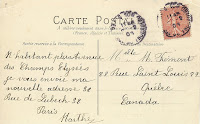 CARTE POSTALE
N'habitant plus avenue
des Champs Elysées
je vous envoie ma
nouvelle adresse 20
Rue de Lubeck. 20
Paris
Marthe
Mlle M. Frémont
28 Rue Saint-Louis 28
Québec
Canada